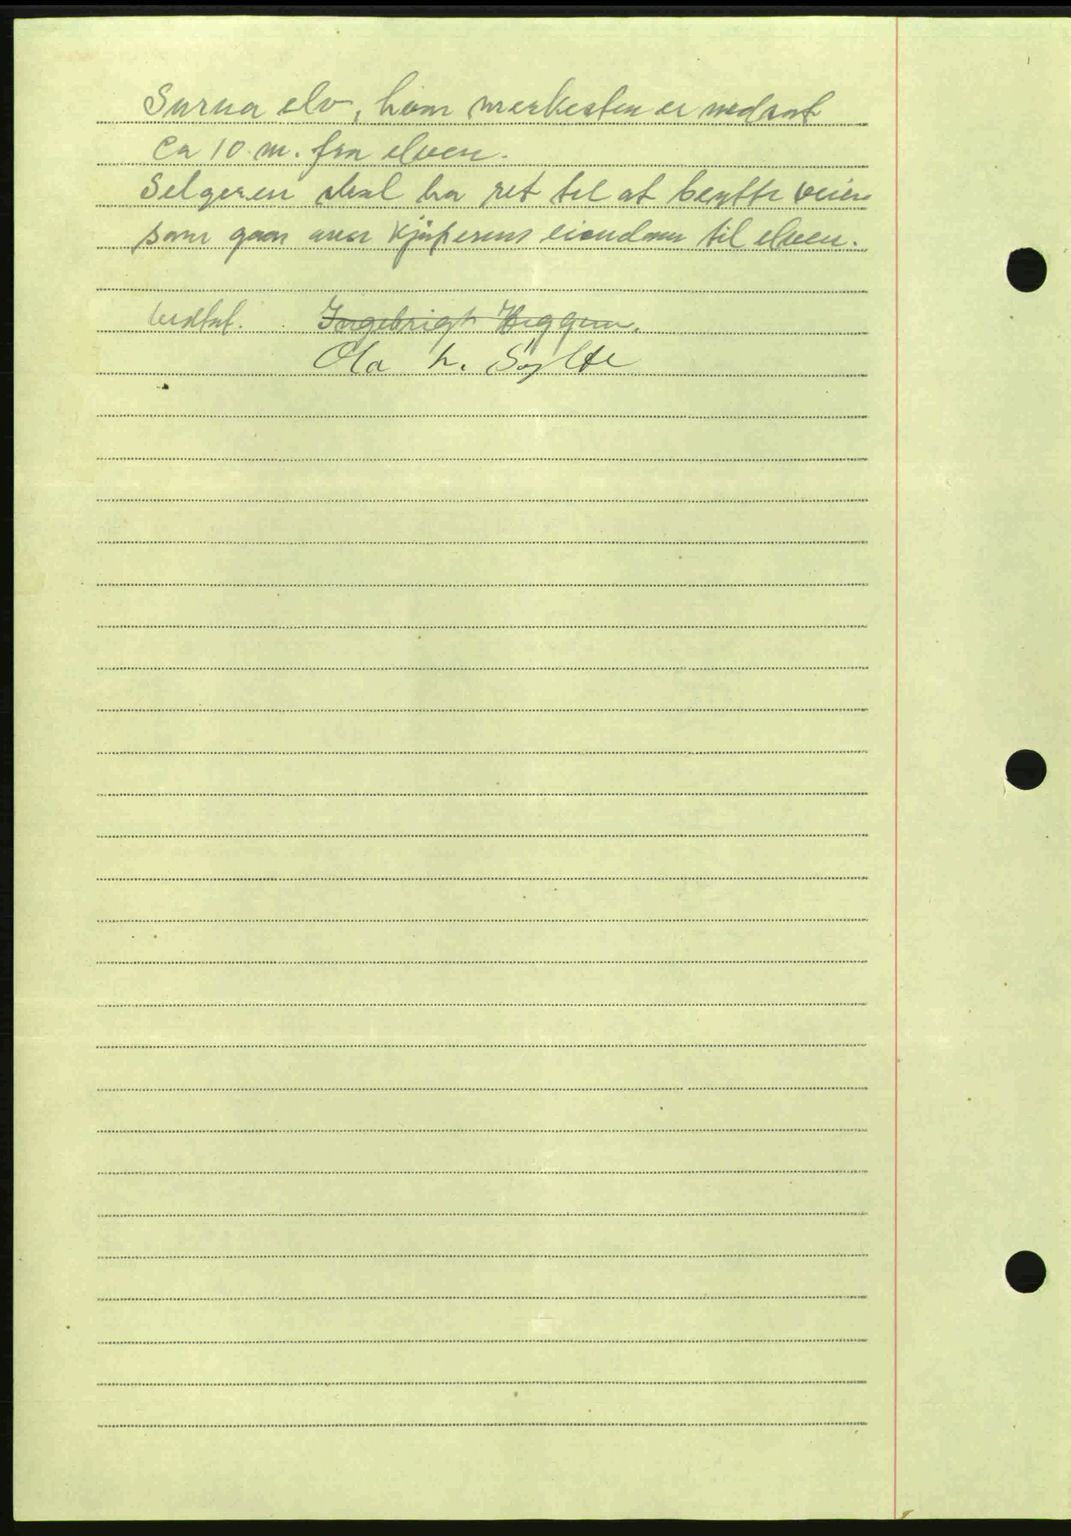 Surna elv, hvor merkesten er nedsat
Ca 10 m. fra elven.
Selgeren skal ha ret til at benytte veien
som gaar over kjøperens eiendom til elven.
Vedtat. Ingebrigt Heggem.
Ola L. Sylte